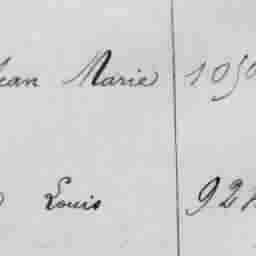 Jean Marie 105
Louis 92